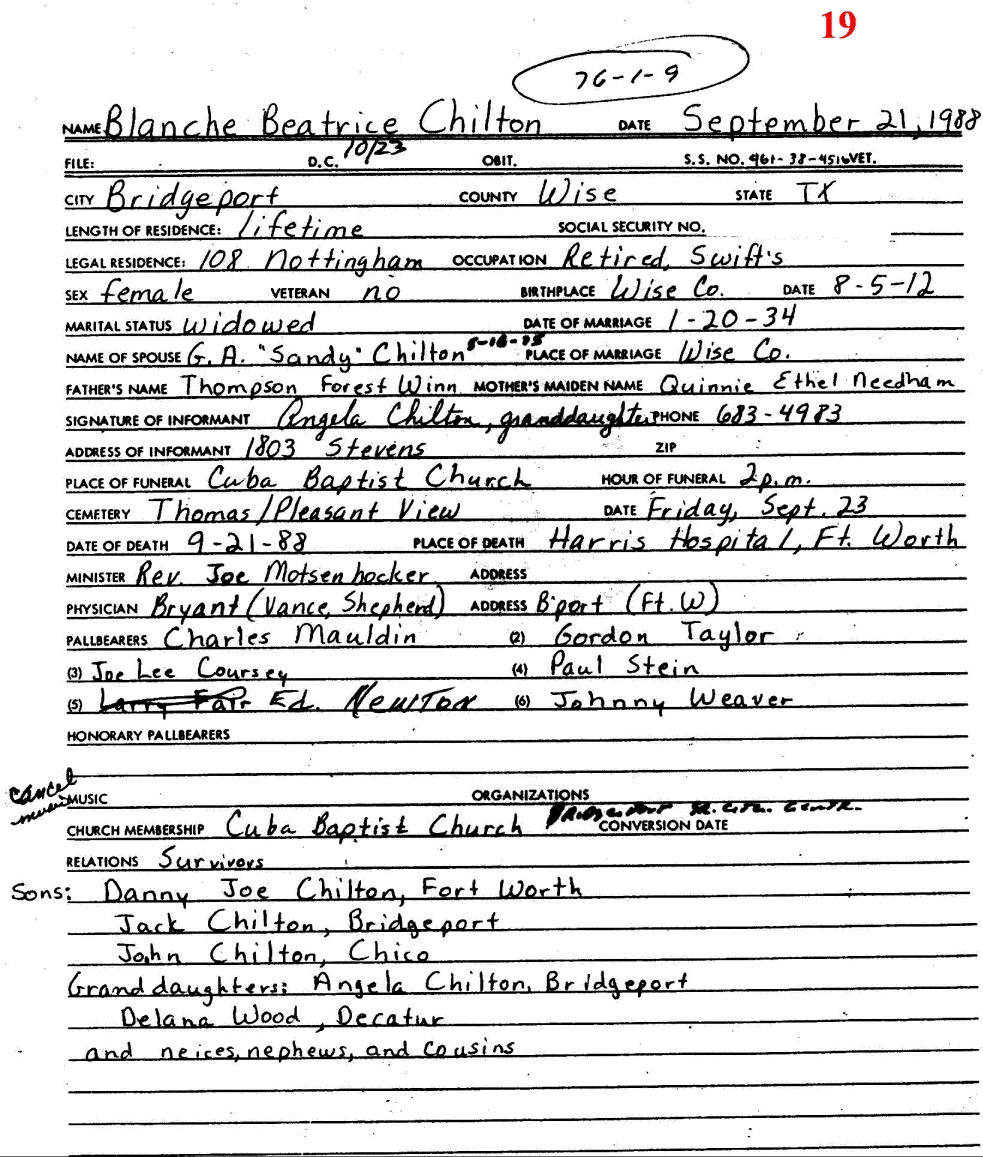 19
76-1-9
NAME Blanche Beatrice Chilton DATE September 21, 1988
FILE: D.C. 10/23 OBIT. S.S. NO. 461-38-4516 VET.
CITY Bridgeport COUNTY Wise STATE TX
LENGTH OF RESIDENCE: lifetime SOCIAL SECURITY NO.
LEGAL RESIDENCE: 108 Nottingham OCCUPATION Retired, Swift's
SEX female VETERAN no BIRTHPLACE Wise Co. DATE 8-5-12
MARITAL STATUS widowed DATE OF MARRIAGE 1-20-34
NAME OF SPOUSE G. A. "Sandy" Chilton PLACE OF MARRIAGE Wise Co.
FATHER'S NAME Thompson Forest Winn MOTHER'S MAIDEN NAME Quinnie Ethel Needham
SIGNATURE OF INFORMANT Angela Chilton, granddaughter PHONE 683-4983
ADDRESS OF INFORMANT 1803 Stevens ZIP
PLACE OF FUNERAL Cuba Baptist Church HOUR OF FUNERAL 2 p.m.
CEMETERY Thomas/Pleasant View DATE Friday, Sept. 23
DATE OF DEATH 9-21-88 PLACE OF DEATH Harris Hospital, Ft. Worth
MINISTER Rev. Joe Motsenbocker ADDRESS
PHYSICIAN Bryant (Vance, Shepherd) ADDRESS B'port (Ft. W)
PALLBEARERS Charles Mauldin (2) Gordon Taylor
(3) Joe Lee Coursey (4) Paul Stein
(5) Larry Fair Ed. Newton (6) Johnny Weaver
HONORARY PALLBEARERS
cancel music MUSIC ORGANIZATIONS
CHURCH MEMBERSHIP Cuba Baptist Church CONVERSION DATE
RELATIONS Survivors
Sons: Danny Joe Chilton, Fort Worth
Jack Chilton, Bridgeport
John Chilton, Chico
Granddaughters: Angela Chilton, Bridgeport
Delana Wood, Decatur
and neices, nephews, and cousins